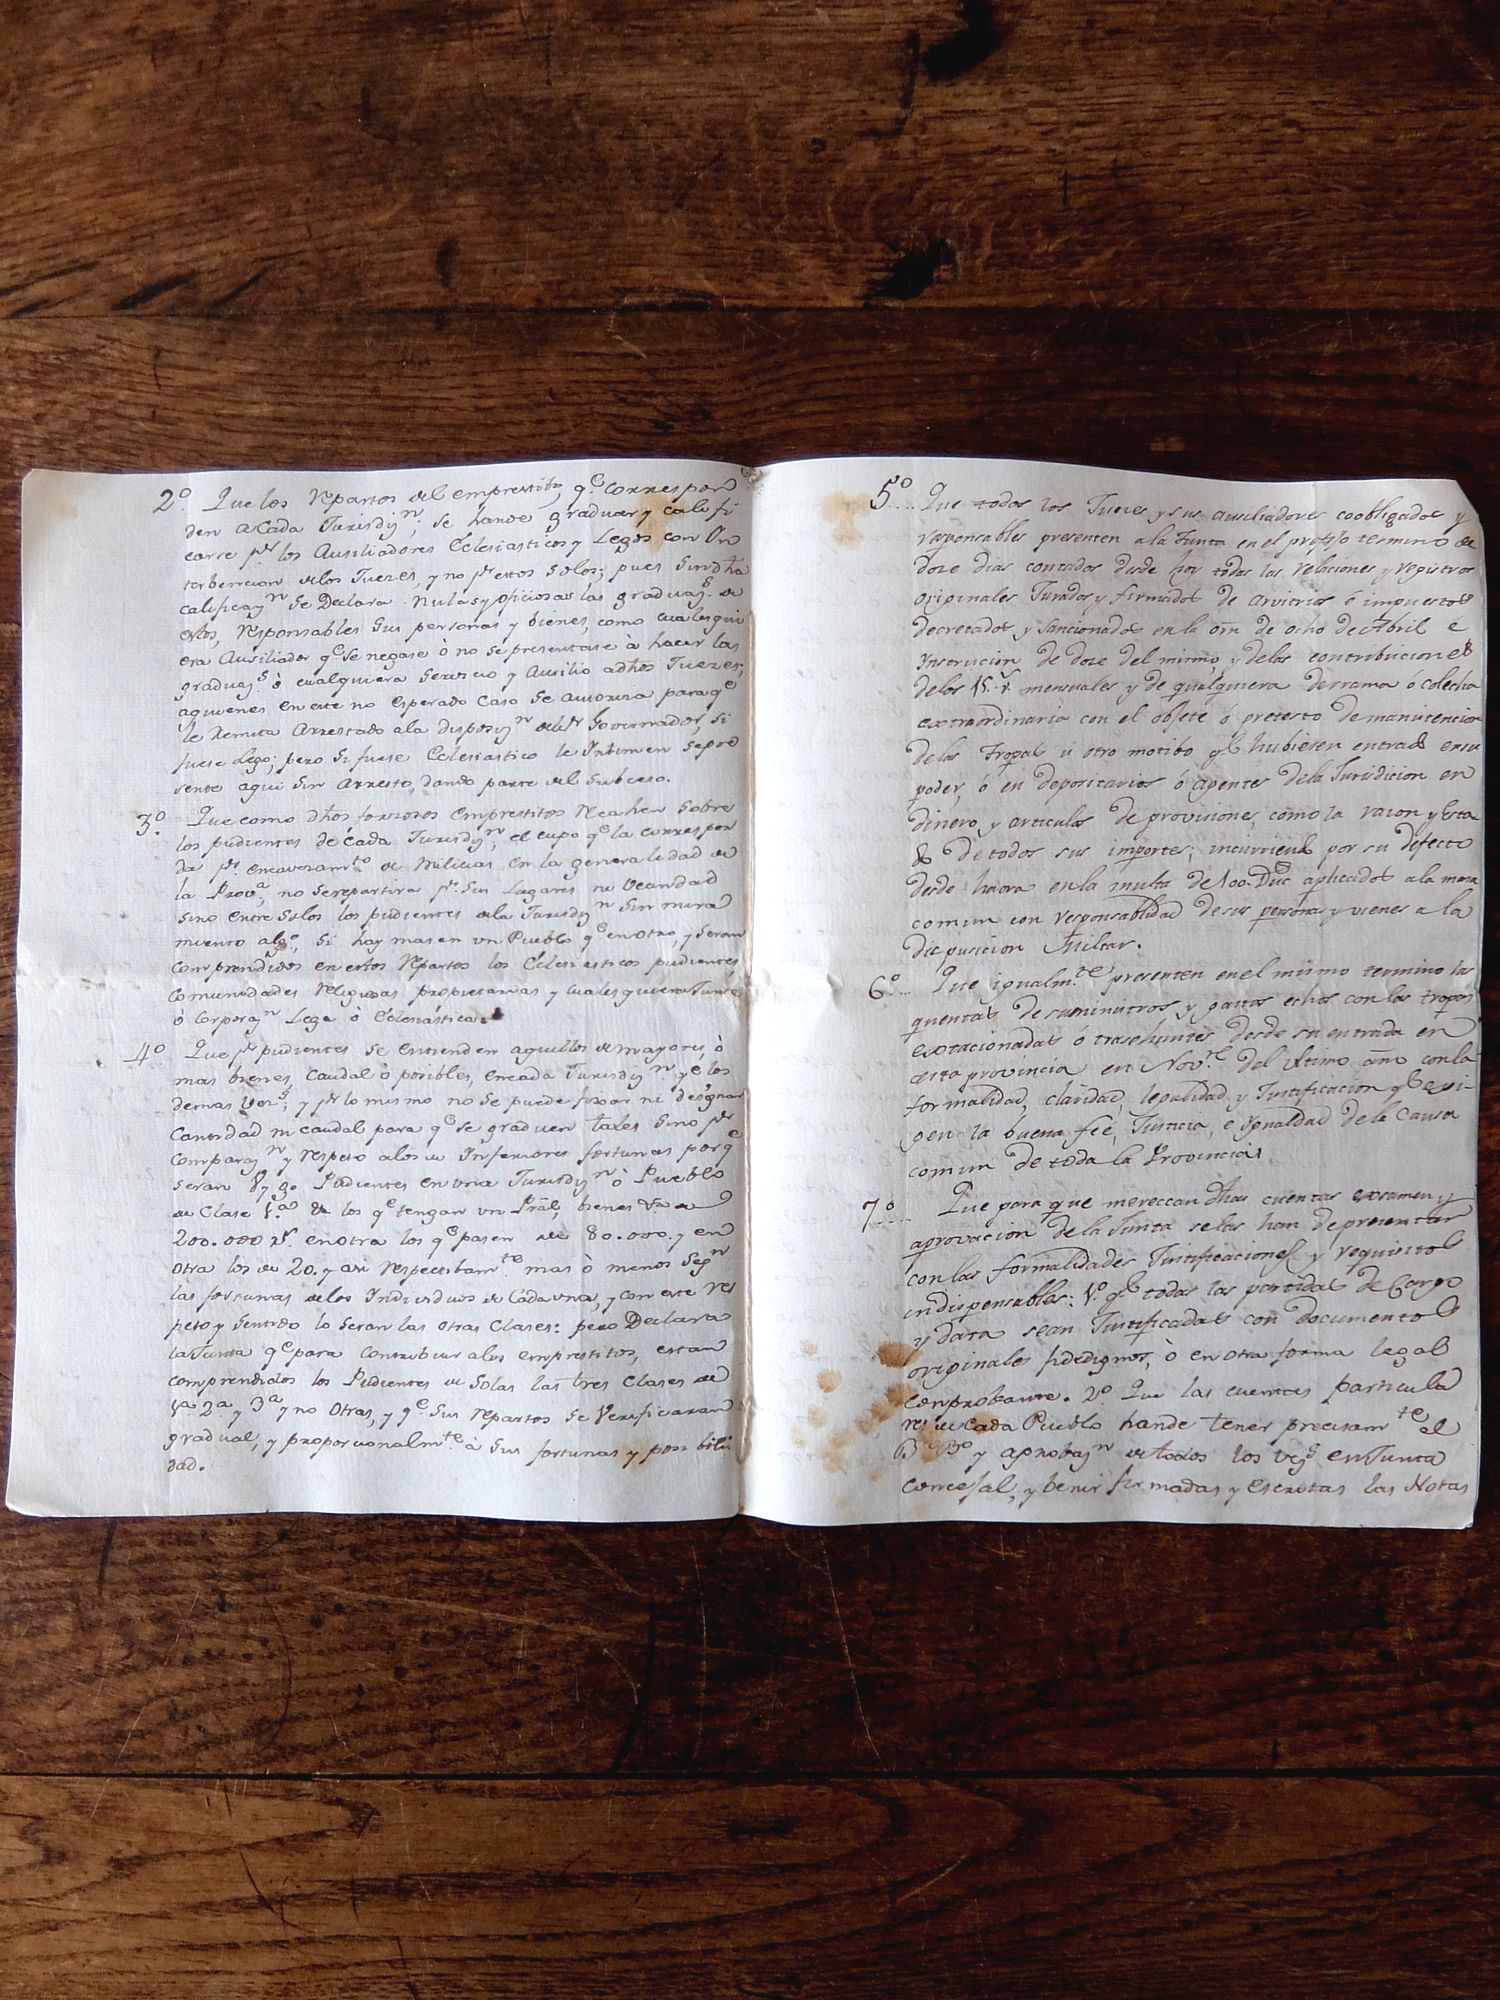 2º. Que los repartos del emprestito, q.e correspon
den a Cada Jurisdiz.n; se hande graduar y califi
carse p.r los Ausiliadores Eclesiasticos y Legos con Yn
terbencion delos Juezes, y no p.r estos solos; pues sin dha
calificaz.n se Declara Nulas y oficiosas las graduaz.s de
estos, responsables sus personas y bienes, como cualesqui
era Ausiliador q.e se negase ò no se presentase à hacer las
graduaz.s ò cualquiera servicio y Ausilio a dhos Juezes;
aquienes en este no esperado Caso se autoriza para q.e
le Remita Arrestado ala disposiz.n del Sr. Governador, si
fuese Lego; pero si fuese Eclesiastico le Intimen se pre
sente aqui sin arresto, dando parte del subceso.
3º. Que como dhos forzosos emprestitos Recahen sobre
los pudientes de Cada Jurisdiz.n, el cupo q.e la corrrespon
da p.r encavezam.to de Milicias en la generalidad de
la Prov.a, no se repartira p.r sus Lugares ni Vecindad
sino entre solos los pudientes dela Jurisdiz.n sin mira
miento alg.o, si hay mas en un Pueblo q.e en otro, y seran
comprendidos en estos repartos los Eclesiasticos pudientes,
comunidades religiosas propietarias y cualesquiera Junta
ò Corporaz.n Lega ò Eclesiástica.
4º Que p.r pudientes se entienden aquellos de mayores, ò
mas bienes, Caudal ò posibles, encada Jurisdiz.n q.e los
demas Vez.s; y p.r lo mismo no se puede fixar ni designar
Cantidad ni caudal para q.e se graduen tales sino p.r
comparaz.n y respeto alos de Inferiores fortunas por q.e
seran Pudientes en una Jurisdiz.n ò Pueblo
de Clase 1.a los q.e tengan un Pral, bienes de
200.000 r.s en otra los q.e pasen de 80.000. y en
otra los de 20. y asi respectibam.te mas ò menos seg.n
las fortunas delos Individuos de Cada una, y con este res
peto y sentido lo seran las otras Clases: pero Declara
la Junta q.e para Contribuir alos emprestitos, estan
comprendidos los Pudientes de solas las tres Clases de
1a 2a y 3a y no Otras, y q.e sus repartos se Verificaran
gradual, y proporcionalm.te à sus fortunas y posibili
dad.
5º.... Que todos los Jueces y sus ausiliadores coobligados y
responsables presenten a la Junta en el preffso termino de
doze dias contados desde hoy todas las relaciones y registros
originales Jurados y firmados de arvitrios ó impuestos
decretados y sancionados en la orn de ocho de Abril e
Instrucion de doze del mismo, y delas contribuciones
delos 15. r.s mensuales y de qualquiera derrama ó colecha
extraordinaria con el objete ó pretesto de manutencion
delas Tropas ú otro motibo q.e hubiesen entrado en su
poder, ó en depositarios ó agentes dela Jurisdicion en
dinero, y articulos de provisiones, como la razon y Esta
do de todos sus importes; incurriendo por su defecto
desde haora en la multa de 100. Duc.s aplicados a la masa
comun con responsablidad de sus personas y vienes a la
disposicion Militar.
6º... Que igualm.te presenten en el mismo termino las
quentas de suministros y gastos echos con las tropas
estacionadas ó traseuntes desde su entrada en
esta provincia en Nov.re del ultimo año con la
formalidad, claridad, legalidad y Justificacion q.e exi-
gen la buena fée, Justicia, e ygualdad de la Causa
comun de toda la Provincia.
7º... Que para que merezcan dhas cuentas examen y
aprovacion de la Junta se las han de presentar
con las formalidades Justificaciones y requisitos
indispensables: 1.º q.e todas las partidas de Cargo
y data sean Justificadas con documentos
originales fidedignos, ò en otra forma legal
conprobante. 2º Que las cuentas particula
res de Cada Pueblo hande tener precisam.te el
Bº.Bº y aprobaz.n de todos los vez.s en Junta
Concejal, y benir firmadas y escritas las Notas